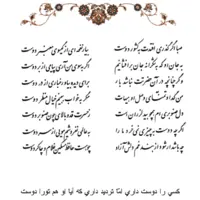 صبا اگر گذری افتدت به کشور دوست
بیار نفحه‌ای از گیسوی معنبر دوست
به جان او که به شکرانه جان برافشانم
اگر به سوی من آری پیامی از بر دوست
و گر چنان که در آن حضرتت نباشد بار
برای دیده بیاور غباری از در دوست
من گدا و تمنای وصل او هیهات
مگر به خواب ببینم خیال منظر دوست
اگر چه دوست به چیزی نمی‌خرد ما را
به عالمی نفروشیم مویی از سر دوست
چه باشد ار شود از بند غم دلش آزاد
چو هست حافظ مسکین غلام و چاکر دوست
کسي را دوست داري اما ترديد داري که آيا او هم تورا دوست